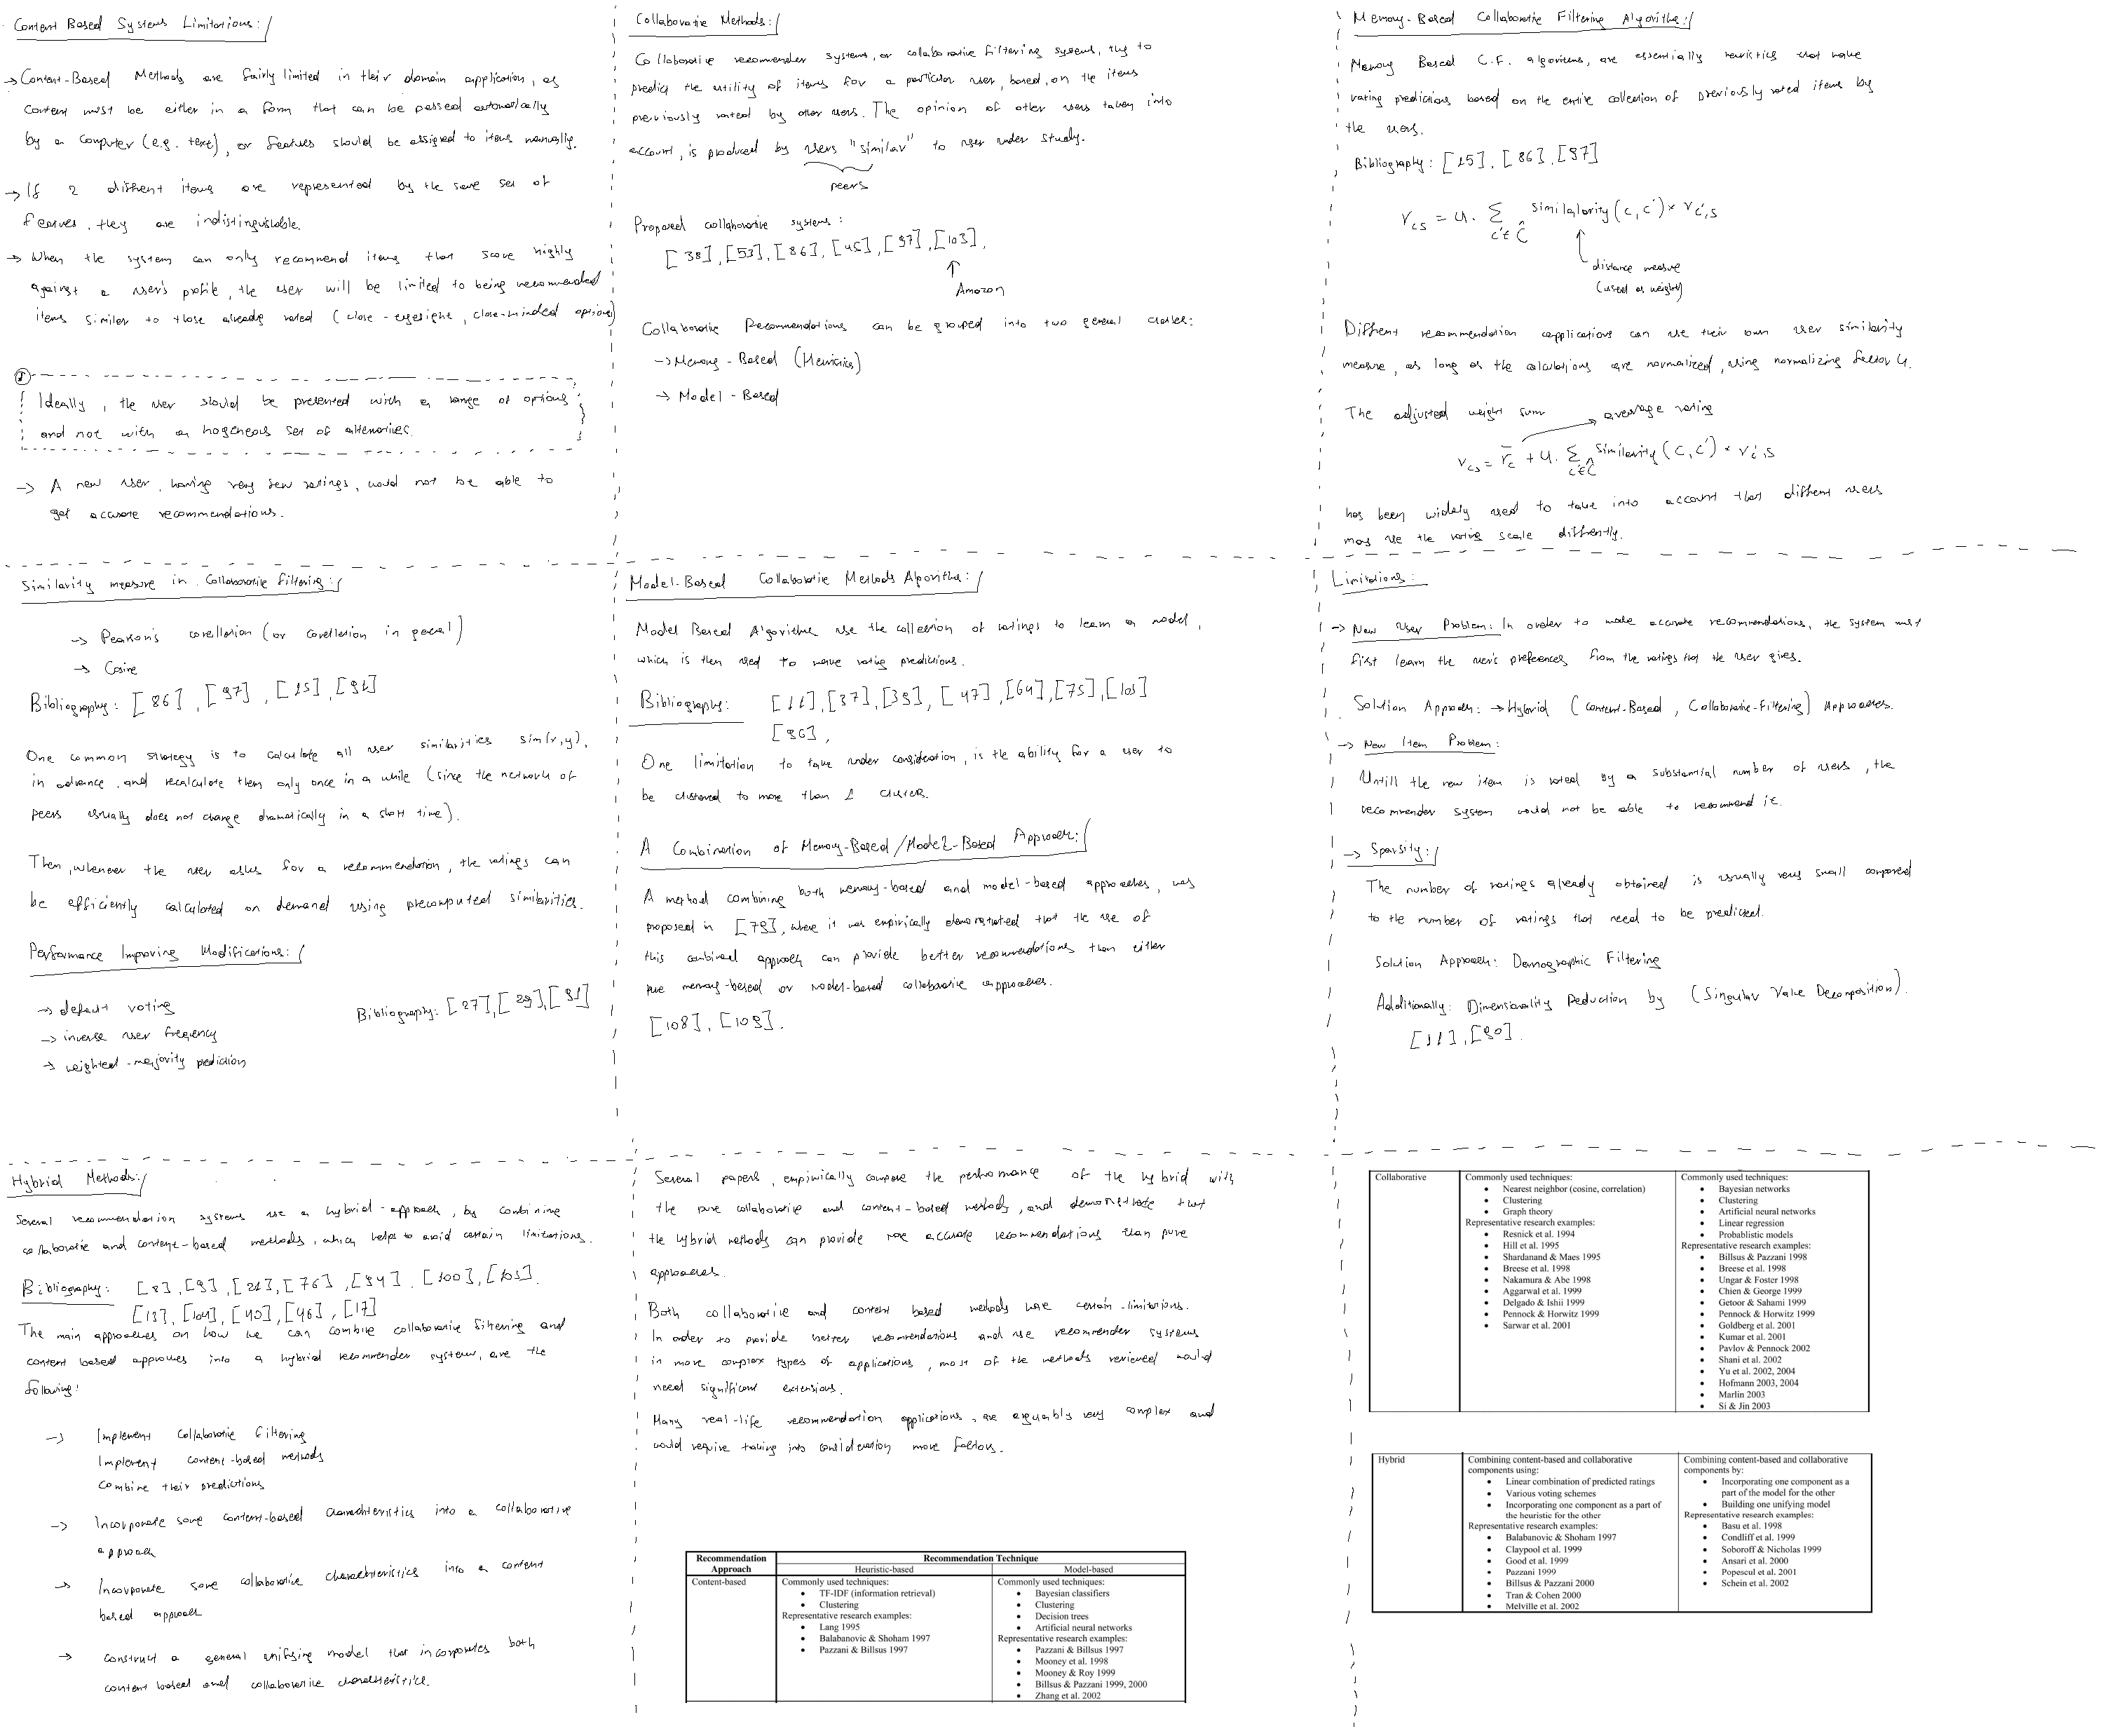 Content Based Systems Limitations:/
→ Content-Based Methods are fairly limited in their domain application, as
content must be either in a form that can be passed automatically
by a computer (e.g. text), or features should be assigned to items manually.
→ If 2 diffrent items are represented by the same set of
features, they are indistinguishable.
→ When the system can only recommend items that score highly
against a user's profile, the user will be limited to being recommended
items similar to those already rated (close-eyesight, close-minded options)
Ideally, the user should be presented with a range of options
and not with a hogeneous set of alternatives.
→ A new user, having very few ratings, would not be able to
get accurate recommendations.
Collaborative Methods:/
Collaborative recommender systems, or colaborative filtering systems, try to
predict the utility of items for a particular user, based, on the items
previously rated by other users. The opinion of other users taken into
account, is produced by users "similar" to user under study.
peers
Proposed collaborative systems:
[38], [53], [86], [45], [97], [103],
Amazon
Collaborative Recommendations can be grouped into two general classes:
→ Memory-Based (Heuristics)
→ Model-Based
Memory-Based Collaborative Filtering Algorithms:/
Memory Based C.F. algorithms, are essentially heuristics that make
rating predictions based on the entire collection of previously rated items by
the users.
Bibliography: [15], [86], [97]
r cs = u. Σ c'∈Ĉ similalarity(c,c') × r c',s
distance measure
(used as weight)
Diffrent recommendation applications can use their own user similarity
measure, as long as the calculations are normalized, using normalizing factor u.
The adjusted weight sum → average rating
r cs = r̄c + u. Σ c'∈Ĉ similarity(c,c') × r c',s
has been widely used to take into account that diffrent users
may use the rating scale diffrently.
Similarity measure in Collaborative Filtering:/
→ Pearson's corellation (or corellation in general)
→ Cosine
Bibliography: [86], [97], [15], [91]
One common strategy is to calculate all user similarities sim(x,y),
in advance, and recalculate them only once in a while (since the network of
peers usually does not change dramatically in a short time).
Then, whenever the user asks for a recommendation, the ratings can
be efficiently calculated on demand using precomputed similarities.
Performance Improving Modifications:/
→ default voting
→ inverse user frequency
→ weighted-majority prediction
Bibliography: [27], [29], [91]
Model-Based Collaborative Methods Algorithms:/
Model Based Algorithms use the collection of ratings to learn a model,
which is then used to make rating predictions.
Bibliography: [11], [37], [39], [47], [64], [75], [105]
[96],
One limitation to take under consideration, is the ability for a user to
be clustered to more than 1 cluster.
A Combination of Memory-Based/Model-Based Approach:/
A method combining both memory-based and model-based approaches, was
proposed in [79], where it was empirically demonstrated that the use of
this combined approach can provide better recommendations than either
pure memory-based or model-based collaborative approaches.
[108], [109].
Limitations:
→ New User Problem: In order to make accurate recommendations, the system must
first learn the user's preferences from the ratings that the user gives.
Solution Approach: → Hybrid (Content-Based, Collaborative-Filtering) Approaches.
→ New Item Problem:
Untill the new item is rated by a substantial number of users, the
recommender system would not be able to recommend it.
→ Sparsity:/
The number of ratings already obtained is usually very small compared
to the number of ratings that need to be predicted.
Solution Approach: Demographic Filtering
Additionally: Dimensionality Reduction by (Singular Value Decomposition).
[11], [90].
Hybrid Methods:/
Several recommendation systems use a hybrid-approach, by combining
collaborative and content-based methods, which helps to avoid certain limitations.
Bibliography: [8], [9], [21], [76], [94], [100], [105].
[13], [104], [40], [46], [17]
The main approaches on how we can combine collaborative filtering and
content based approaches into a hybrid recommender systems, are the
following:
→ Implement Collaborative Filtering
Implement content-based methods
Combine their predictions
→ Incorporate some content-based characteristics into a collaborative
approach
→ Incorporate some collaborative characteristics into a content
based approach
→ Construct a general unifying model that incorporates both
content based and collaborative characteristics.
Several papers, empirically compare the performance of the hybrid with
the pure collaborative and content-based methods, and demonstrate that
the hybrid methods can provide more accurate recommendations than pure
approaches.
Both collaborative and content based methods have certain limitations.
In order to provide better recommendations and use recommender systems
in more complex types of applications, most of the methods reviewed would
need significant extensions.
Many real-life recommendation applications, are arguably very complex and
would require taking into consideration more factors.
Recommendation Approach
Recommendation Technique
Heuristic-based
Model-based
Content-based
Commonly used techniques:
• TF-IDF (information retrieval)
• Clustering
Representative research examples:
• Lang 1995
• Balabanovic & Shoham 1997
• Pazzani & Billsus 1997
Commonly used techniques:
• Bayesian classifiers
• Clustering
• Decision trees
• Artificial neural networks
Representative research examples:
• Pazzani & Billsus 1997
• Mooney et al. 1998
• Mooney & Roy 1999
• Billsus & Pazzani 1999, 2000
• Zhang et al. 2002
Collaborative
Commonly used techniques:
• Nearest neighbor (cosine, correlation)
• Clustering
• Graph theory
Representative research examples:
• Resnick et al. 1994
• Hill et al. 1995
• Shardanand & Maes 1995
• Breese et al. 1998
• Nakamura & Abe 1998
• Aggarwal et al. 1999
• Delgado & Ishii 1999
• Pennock & Horwitz 1999
• Sarwar et al. 2001
Commonly used techniques:
• Bayesian networks
• Clustering
• Artificial neural networks
• Linear regression
• Probablistic models
Representative research examples:
• Billsus & Pazzani 1998
• Breese et al. 1998
• Ungar & Foster 1998
• Chien & George 1999
• Getoor & Sahami 1999
• Pennock & Horwitz 1999
• Goldberg et al. 2001
• Kumar et al. 2001
• Pavlov & Pennock 2002
• Shani et al. 2002
• Yu et al. 2002, 2004
• Hofmann 2003, 2004
• Marlin 2003
• Si & Jin 2003
Hybrid
Combining content-based and collaborative
components using:
• Linear combination of predicted ratings
• Various voting schemes
• Incorporating one component as a part of
the heuristic for the other
Representative research examples:
• Balabanovic & Shoham 1997
• Claypool et al. 1999
• Good et al. 1999
• Pazzani 1999
• Billsus & Pazzani 2000
• Tran & Cohen 2000
• Melville et al. 2002
Combining content-based and collaborative
components by:
• Incorporating one component as a
part of the model for the other
• Building one unifying model
Representative research examples:
• Basu et al. 1998
• Condliff et al. 1999
• Soboroff & Nicholas 1999
• Ansari et al. 2000
• Popescul et al. 2001
• Schein et al. 2002